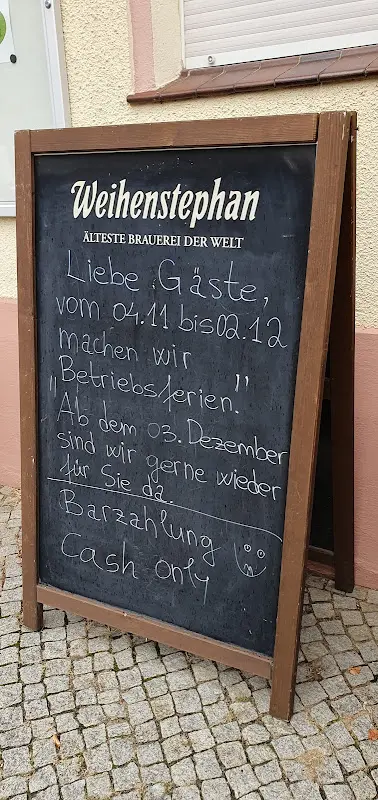 Weihenstephan
ÄLTESTE BRAUEREI DER WELT
Liebe Gäste,
vom 04.11 bis 02.12
machen wir
"Betriebsferien."
Ab dem 03. Dezember
sind wir gerne wieder
für Sie da.
Barzahlung
Cash only